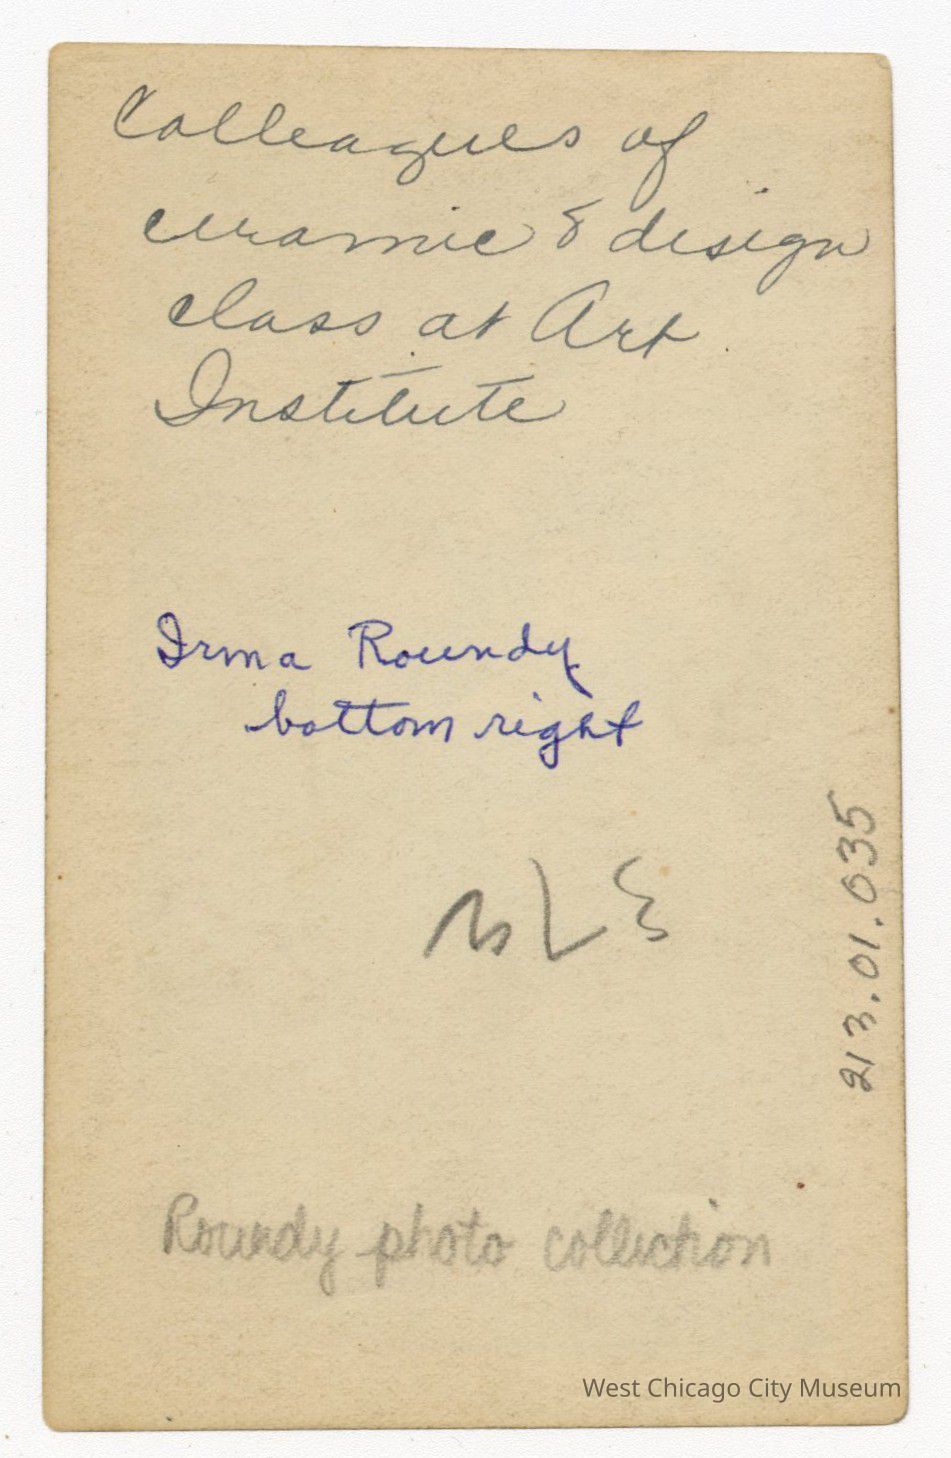 Colleagues of
ceramic & design
class at Art
Institute
Irma Roundy
bottom right
213.01.035
Roundy photo collection
West Chicago City Museum